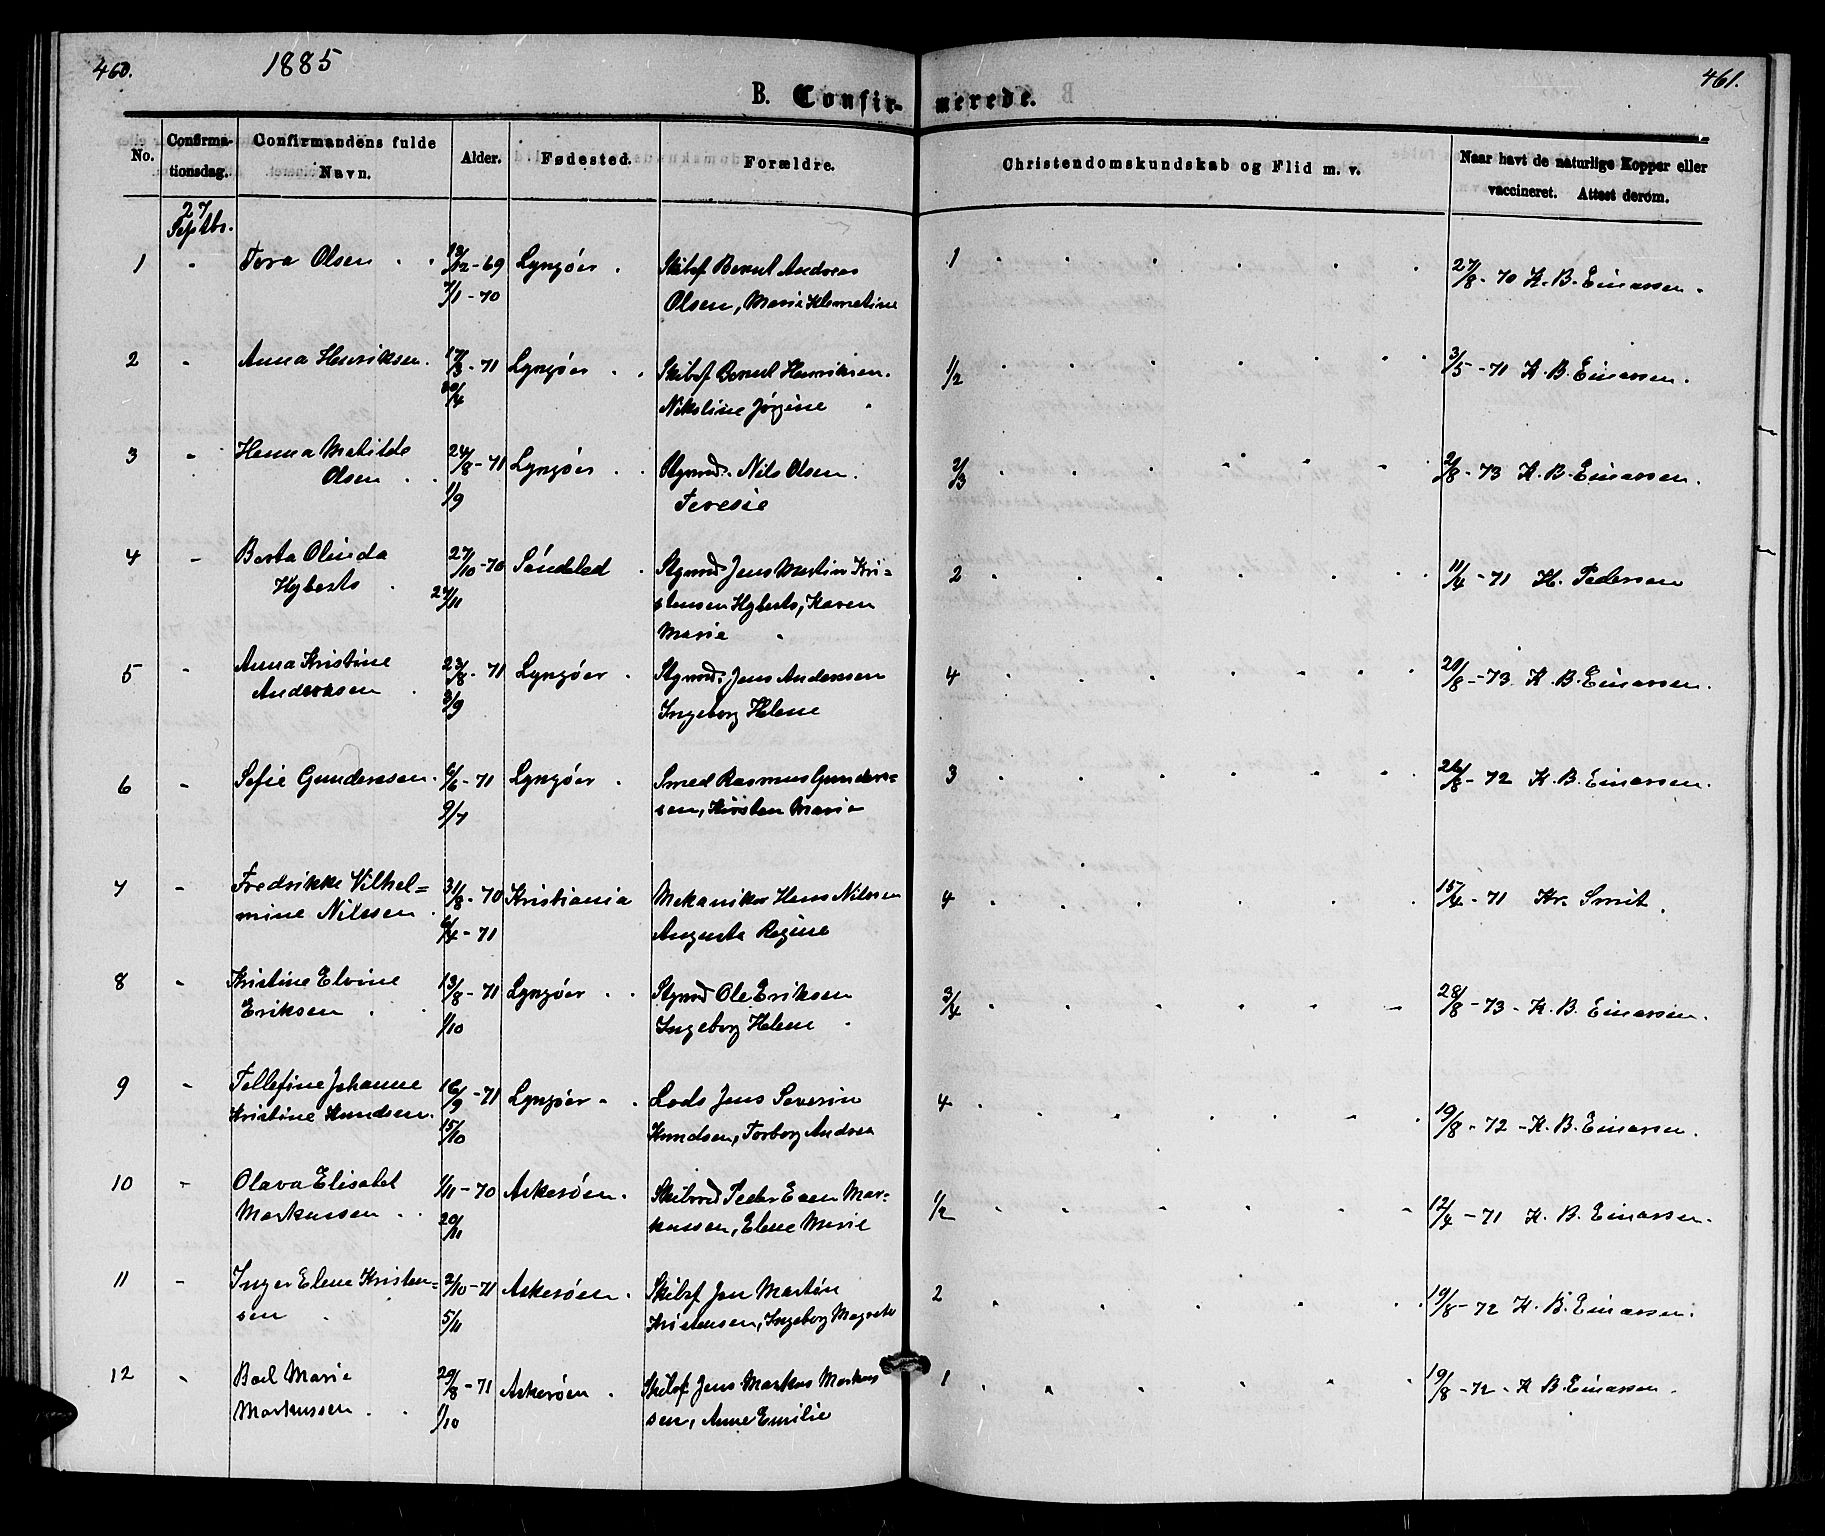 460.
1885
B. Confir-
No.
Confirma-
tionsdag.
Confirmandens fulde
Navn.
Alder.
Fødested.
Forældre.
27
Septbr.
1 " Tora Olsen . . 12-69 Lyngøer . Skibsf Bernt Andreas
7/1-70 Olsen, Marie Klemetine
2 " Anna Henriksen. 17/3-71 Lyngøer . . Skibsf Bernt Henriksen.
/4 Nikoline Jørgine
3 " Hanna Matilde 24/8-71 Lyngøer . . Styrmd. Nils Olsen.
Olsen . . 1/9 Teresie
4 " Berta Olinda 27/10-70 Søndeled . Styrmd Jens Martin Kri-
Hyberts . 27/11 stensen Hyberts, Karen
Marie
5 " Anna Kristine 23/8-71 Lyngøer . Styrmd. Jens Andersen
Andersen . 3/9 Ingeborg Helene
6 " Sofie Gundersen . 6/6-71 Lyngøer . Smed Rasmus Gunder=
9/7 sen, Kirsten Marie
7 " Fredrikke Vilhel= 31/8-70 Kristiania Mekaniker Hans Nilssen
mine Nilssen . 6/4-71 Augusta Regine
8 " Kristine Elvine 13/8-71 Lyngøer . . Styrmd Ole Eriksen
Eriksen . . 1/10 Ingeborg Helene .
9 " Tellefine Johanne 16/9-71 Lyngøer . . Lods Jens Severin
Kristine Knudsen. 15/10 Knudsen, Torborg Andrea
10 " Olava Elisabet 1/11-70 Askerøen. Skibsrd Peder Even Mar-
Markussen . . 20/11 kussen, Elene Marie
11 " Inger Elene Kristen= 2/10-71 Askerøen . Skibsf Jen Martin
sen . 5/11 Kristensen, Ingeborg Magrete
12 " Boel Marie 29/8-71 Askerøen . Skibsf Jens Markus Markus
Markussen . . 1/10 sen, Anne Emilie
461.
merede.
Christendomskundskab og Flid m. v.
Naar havt de naturlige Kopper eller
vaccineret. Attest derom.
1 27/8-70 K. B. Einarssen.
1/2 3/5-71 K. B. Einarssen.
2/3 2/8-73 K. B. Einarssen.
2 11/4-71 H. Pedersen
4 20/8-73. K. B. Einarssen.
3 26/8-72 K. B. Einarssen.
4 15/4-71 Kr. Smit.
3/4 28/8-73- K. B. Einarssen.
4 19/8-72 - K. B. Einarssen.
1/2 12/4-71 K. B. Einarssen.
2 19/8-72 K. B. Einarssen.
1 19/8-72- K B. Einarssen.